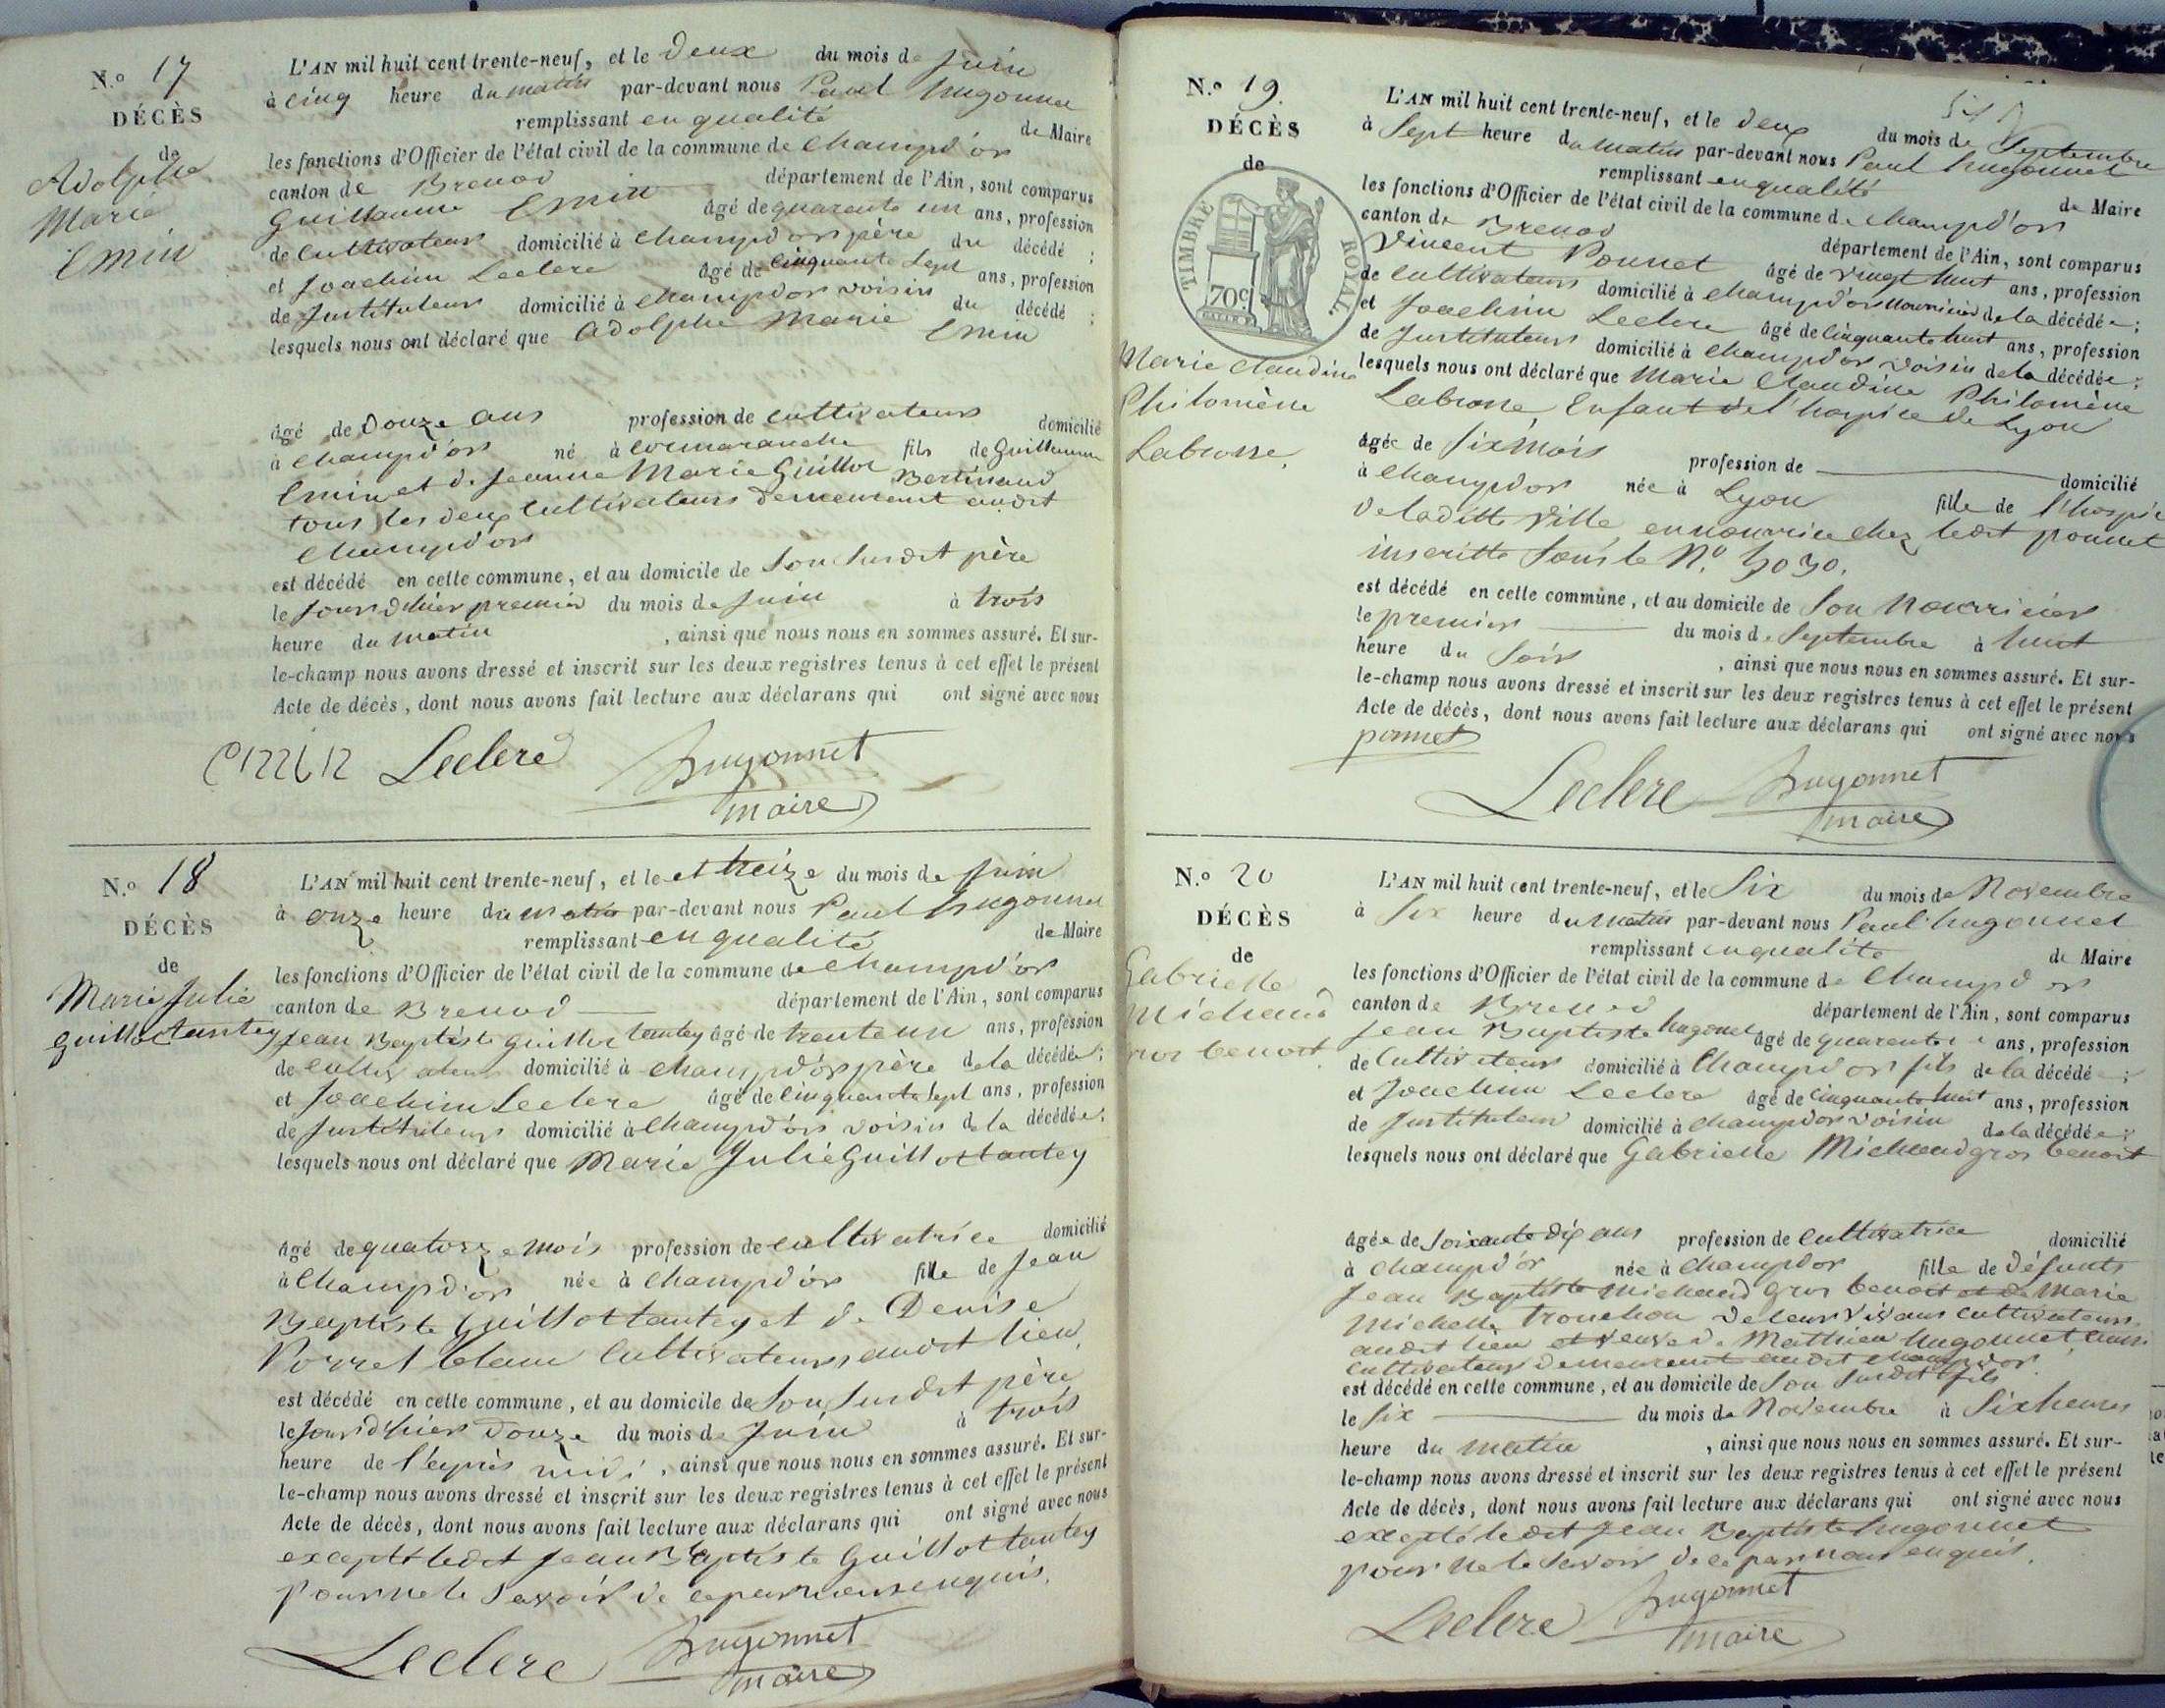 N.º 17
DÉCÈS
de
Adolphe
Marie
Emin
L'AN mil huit cent trente-neuf, et le deux du mois de juin
à cinq heure du matin par-devant nous Paul hugonnet
remplissant en qualité de Maire
les fonctions d'Officier de l'état civil de la commune de champd'or
canton de Brenod département de l'Ain, sont comparus
Guillaume Emin âgé de quarante un ans, profession
de cultivateur domicilié à champd'or père du décédé ;
et Joachim Leclerc âgé de cinquante sept ans, profession
de Instituteur domicilié à champd'or voisin du décédé ;
lesquels nous ont déclaré que Adolphe Marie Emin
âgé de Douze ans profession de cultivateur domicilié
à champd'or né à cormaranche fils de Guillaume
Emin et de Jeanne Marie Guillot Bertinand
tous les deux cultivateurs demeurant audit
champd'or
est décédé en cette commune, et au domicile de son susdit père
le jour d'hier premier du mois de juin à trois
heure du matin , ainsi que nous nous en sommes assuré. Et sur-
le-champ nous avons dressé et inscrit sur les deux registres tenus à cet effet le présent
Acte de décès, dont nous avons fait lecture aux déclarans qui ont signé avec nous
Leclerc hugonnet
maire
N.º 18
DÉCÈS
de
Marie Julie
guillottantey
L'AN mil huit cent trente-neuf, et le et treize du mois de juin
à onze heure du matin par-devant nous Paul hugonnet
remplissant en qualité de Maire
les fonctions d'Officier de l'état civil de la commune de champd'or
canton de Brenod département de l'Ain, sont comparus
Jean Baptiste guillot tantey âgé de trente un ans, profession
de cultivateur domicilié à champd'or père de la décédée ;
et Joachim Leclerc âgé de cinquante sept ans, profession
de Instituteur domicilié à champd'or voisin de la décédée ;
lesquels nous ont déclaré que Marie Julie Guillottantey
âgé de quatorze mois profession de cultivatrice domicilié
à champd'or née à champd'or fille de Jean
Baptiste Guillottantey et de Denise
Porret blanc cultivateurs audit lieu
est décédé en cette commune, et au domicile de son susdit père
le jour d'hier douze du mois de juin à trois
heure de l'après midi , ainsi que nous nous en sommes assuré. Et sur-
le-champ nous avons dressé et inscrit sur les deux registres tenus à cet effet le présent
Acte de décès, dont nous avons fait lecture aux déclarans qui ont signé avec nous
excepté ledit Jean Baptiste Guillottantey
pour ne le savoir de ce par nous enquis.
Leclerc hugonnet
maire
N.º 19.
DÉCÈS
de
TIMBRE ROYAL
70c
Marie claudine
Philomène
Labrosse.
L'AN mil huit cent trente-neuf, et le deux du mois de Septembre
à Sept heure du matin par-devant nous Paul hugonnet
remplissant en qualité de Maire
les fonctions d'Officier de l'état civil de la commune de champd'or
canton de Brenod département de l'Ain, sont comparus
Vincent Ponnet âgé de vingt huit ans, profession
de cultivateur domicilié à champd'or nourricier de la décédée ;
et Joachim Leclerc âgé de cinquante huit ans, profession
de Instituteur domicilié à champd'or voisin de la décédée ;
lesquels nous ont déclaré que Marie Claudine Philomène
Labrosse Enfant de l'hospice de Lyon
âgée de six mois profession de domicilié
à champd'or née à Lyon fille de l'hospice
de laditte ville en nourrice chez ledit ponnet
inscritte sous le N.º 3030.
est décédé en cette commune, et au domicile de son nourricier
le premier du mois de Septembre à huit
heure du soir , ainsi que nous nous en sommes assuré. Et sur-
le-champ nous avons dressé et inscrit sur les deux registres tenus à cet effet le présent
Acte de décès, dont nous avons fait lecture aux déclarans qui ont signé avec nous
ponnet
Leclerc hugonnet
maire
N.º 20
DÉCÈS
de
Gabrielle
Michaud
gros benoit
L'AN mil huit cent trente-neuf, et le Six du mois de Novembre
à Six heure du matin par-devant nous Paul hugonnet
remplissant en qualité de Maire
les fonctions d'Officier de l'état civil de la commune de Champd'or
canton de Brenod département de l'Ain, sont comparus
Jean Baptiste hugonet âgé de quarante ans, profession
de cultivateur domicilié à Champd'or fils de la décédée ;
et Joachim Leclerc âgé de cinquante huit ans, profession
de Instituteur domicilié à champd'or voisin de la décédée ;
lesquels nous ont déclaré que Gabrielle Michaud gros benoit
âgée de soixante dix ans profession de cultivatrice domicilié
à champd'or née à champd'or fille de défunts
Jean Baptiste Michaud gros benoit et de Marie
Michelle tronchon de leur vivans cultivateurs
audit lieu et veuve de Mathieu hugonnet aussi
cultivateur demeurant audit champd'or
est décédé en cette commune, et au domicile de son susdit fils
le six du mois de Novembre à Six heures
heure du matin , ainsi que nous nous en sommes assuré. Et sur-
le-champ nous avons dressé et inscrit sur les deux registres tenus à cet effet le présent
Acte de décès, dont nous avons fait lecture aux déclarans qui ont signé avec nous
excepté ledit Jean Baptiste hugonnet
pour ne le savoir de ce par nous enquis.
Leclerc hugonnet
maire